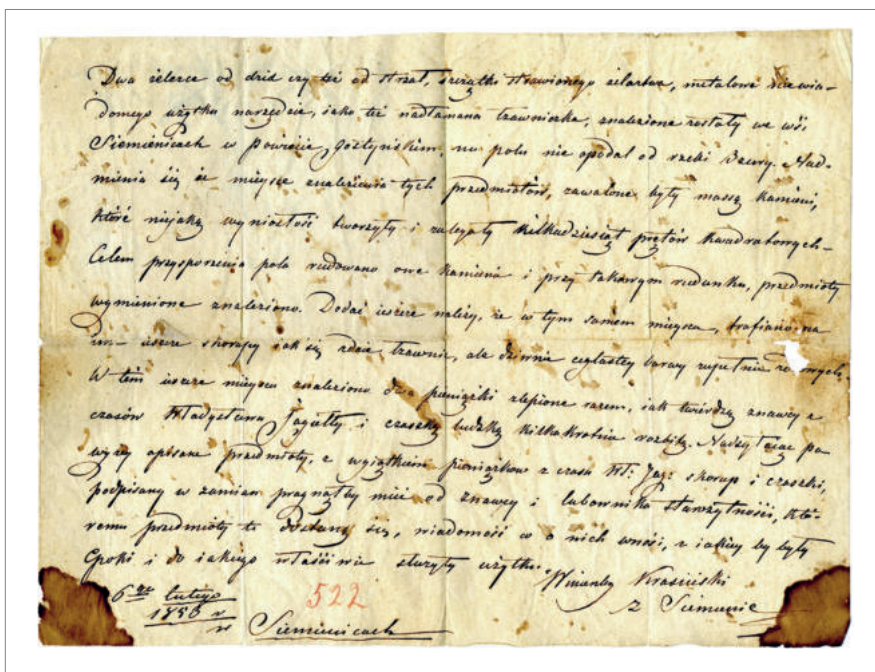 Dwa żelezce od dzid czy też od strzał, szczątki strawionego żelaztwa, metalowe niewia-
domego użytku narzędzie, jako też nadłamana łzawniczka, znalezione zostały we wsi
Siemienicach w powiecie Gostyńskim, na polu nie opodal od rzeki Bzury. Nad-
mienia się że miejsce znalezienia tych przedmiotów, zawalone były massą kamieni,
które niejaką wyniosłość tworzyły i zalegały kilkadziesiąt prętów kwadratowych.
Celem przysporzenia pola rudowano owe kamienie i przy takowym rudunku, przedmioty
wymienione znaleziono. Dodać ieszcze należy, że w tym samem miejscu, trafiano na
ieszcze skorupy iak się zdaie łzawnic, ale dziwnie ceglastey barwy zupełnie
W tém ieszcze miejscu znaleziono dwa pieniążki zlepione razem, iak twierdzą znawcy z
czasów Władysława Jagiełły i czaszkę ludzką kilkakrotnie rozbitą. Nadsyłaiąc po-
wyżey opisane przedmioty, z wyiątkiem pieniążków z czasu Wł: Jag: skorup i czaszki,
podpisany w zamian pragnąłby mieć od znawcy i lubownika starożytności, któ-
remu przedmioty te dostaną się, wiadomość o nich wnosi, z iakiey by były
Epoki i do iakiego właściwie służyły użytku.
Wincenty Krasiński
z Siemienic
6go lutego
1856 r
w Siemienicach
522